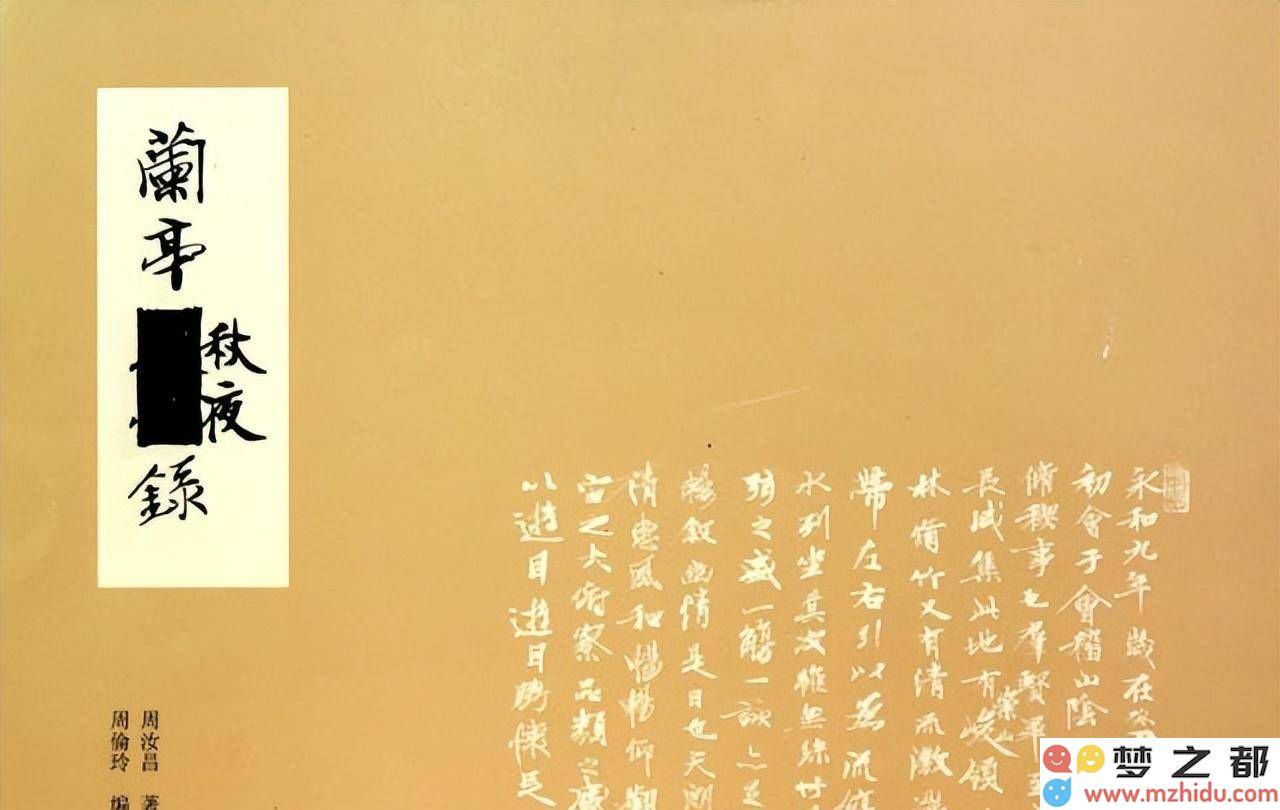 蘭亭
秋夜
錄
周汝昌 著
周倫玲 編
永和九年歲在癸
初會于會稽山陰
脩稧事也羣賢畢至
長咸集此地有崇山峻領
林脩竹又有清流激湍
帶左右引以為流觴
水列坐其次雖無絲竹
弦之盛一觴一詠亦足
暢敘幽情是日也天朗
清惠風和暢暢仰觀
宙之大俯察品類之盛
以遊目遊目騁懷足
梦之都
www.mzhidu.com